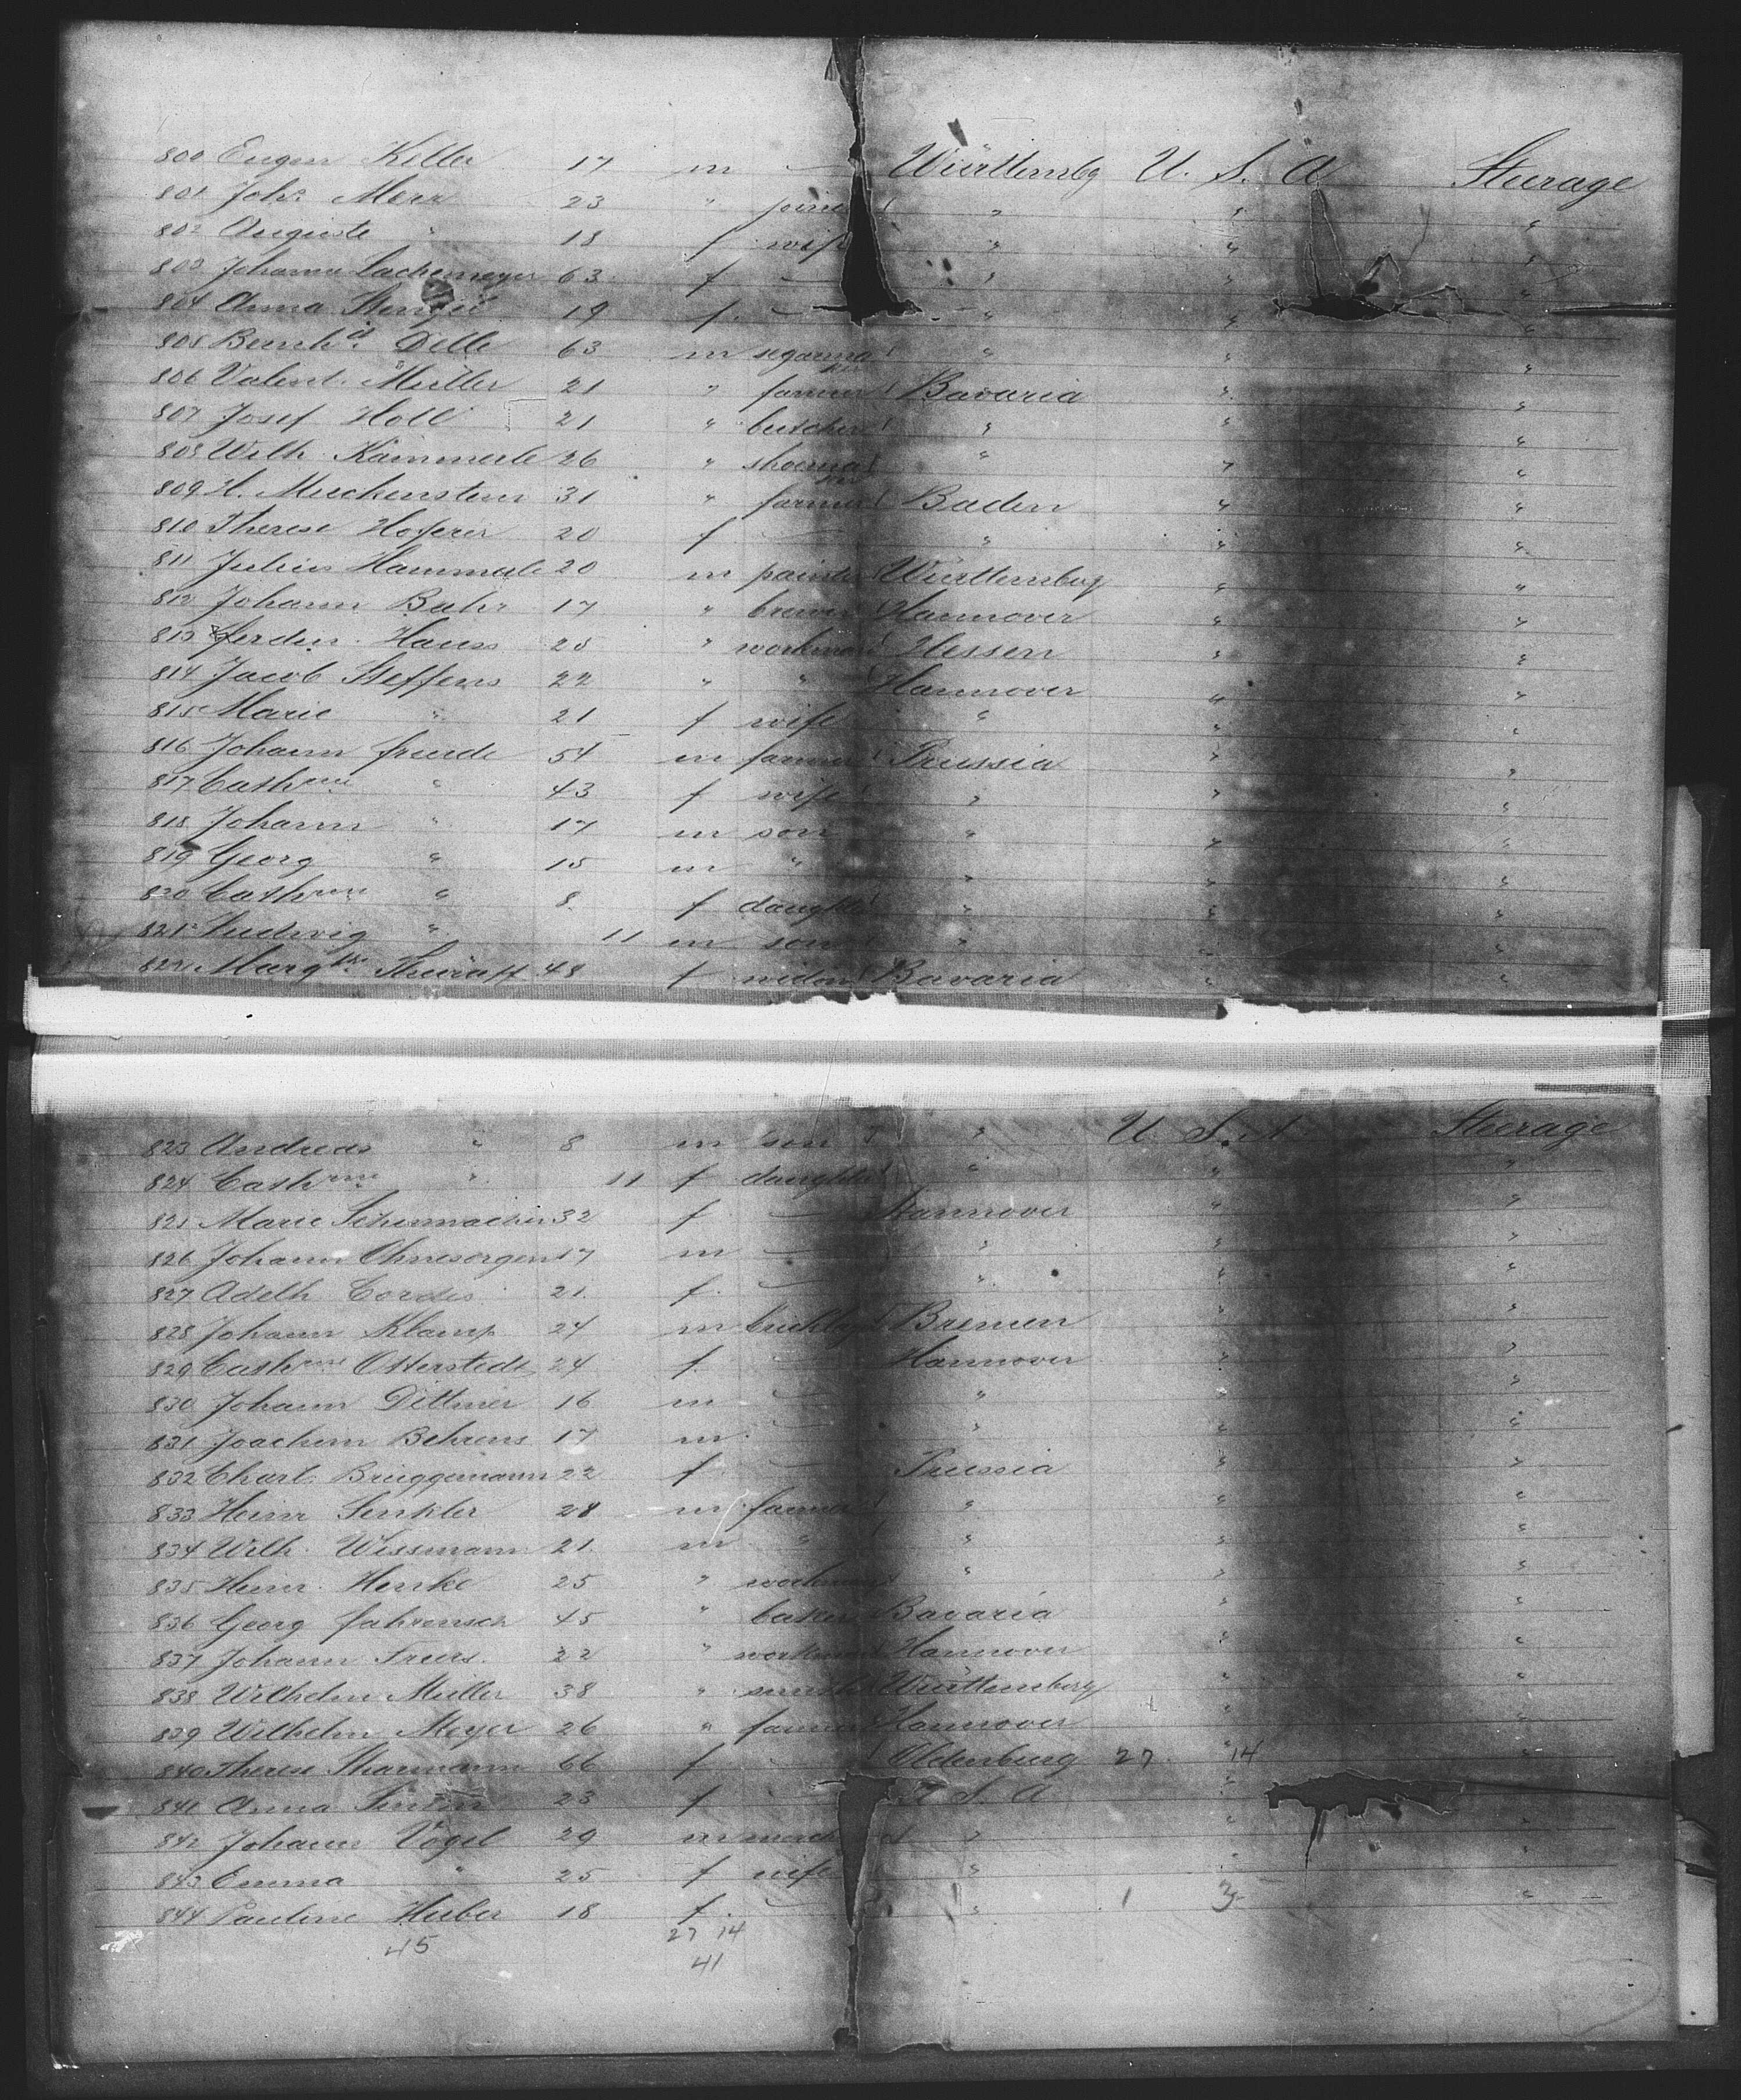 800 Eugen Keller 17 m — Württembg U. S. A Steerage
801 Johs Merz 23 " joiner " " "
802 Auguste " 18 f wife " " "
803 Johanna Lachemeyer 63 f — " " "
804 Anna 19 f. — " " "
805 Bernhd Delle 63 m segarmaker " " "
806 Valent. Müller 21 " farmer Bavaria " "
807 Josef Holl 21 " butcher " " "
808 Wilh. Kämmerle 26 " shoemaker " " "
809 H. Muckenstein 31 " farmer Baden " "
810 Therese Hoferer 20 f — " " "
811 Julius Hammerle 20 m painter Württemberg " "
812 Johann Bahr 17 " brewer Hannover " "
813 Ferdin. Hauss 28 " workman Hessen " "
814 Jacob Steffens 22 " " Hannover " "
815 Marie " 21 f wife " " "
816 Johann Freude 54 m farmer Prussia " "
817 Cathrine " 43 f wife " " "
818 Johann " 17 m son " " "
819 Georg " 15 m " " " "
820 Cathrine " 8 f daughter " " "
821 Ludwig " 11 m son " " "
822 48 f widow Bavaria " "
823 Andreas " 8 m son " U. S. A Steerage
824 Cathrine " 11 f daughter " " "
825 Marie Schumacher 32 f — Hannover " "
826 Johann Ohnesorgen 17 m — " " "
827 Adelh Cordes 21 f. — " " "
828 Johann Klamp 24 m bricklyr Bremen " "
829 Cathrine Otterstedt 24 f. — Hannover " "
830 Johann Dittmer 16 m — " " "
831 Joachim Behrens 17 m. — " " "
832 Charl. Brüggemann 22 f — Prussia " "
833 Heinr Senkler 28 m farmer " " "
834 Wilh. Wissmann 21 m " " " "
835 Heinr. Henke 25 " workman " " "
836 Georg Fahrensch 45 " baker Bavaria " "
837 Johann 22 " workman Hannover " "
838 Wilhelm Müller 38 " smith Württemberg " "
839 Wilhelm Meyer 26 " farmer Hannover " "
840 Therese Tharmann 66 f — Oldenburg 27 " 14 "
841 Anna 23 f — U S. A " "
842 Johann Vogel 29 m merch " " "
843 Emma " 25 f wife " " "
844 Pauline Huber 18 f. — " 1 3 "
45 27 14
41